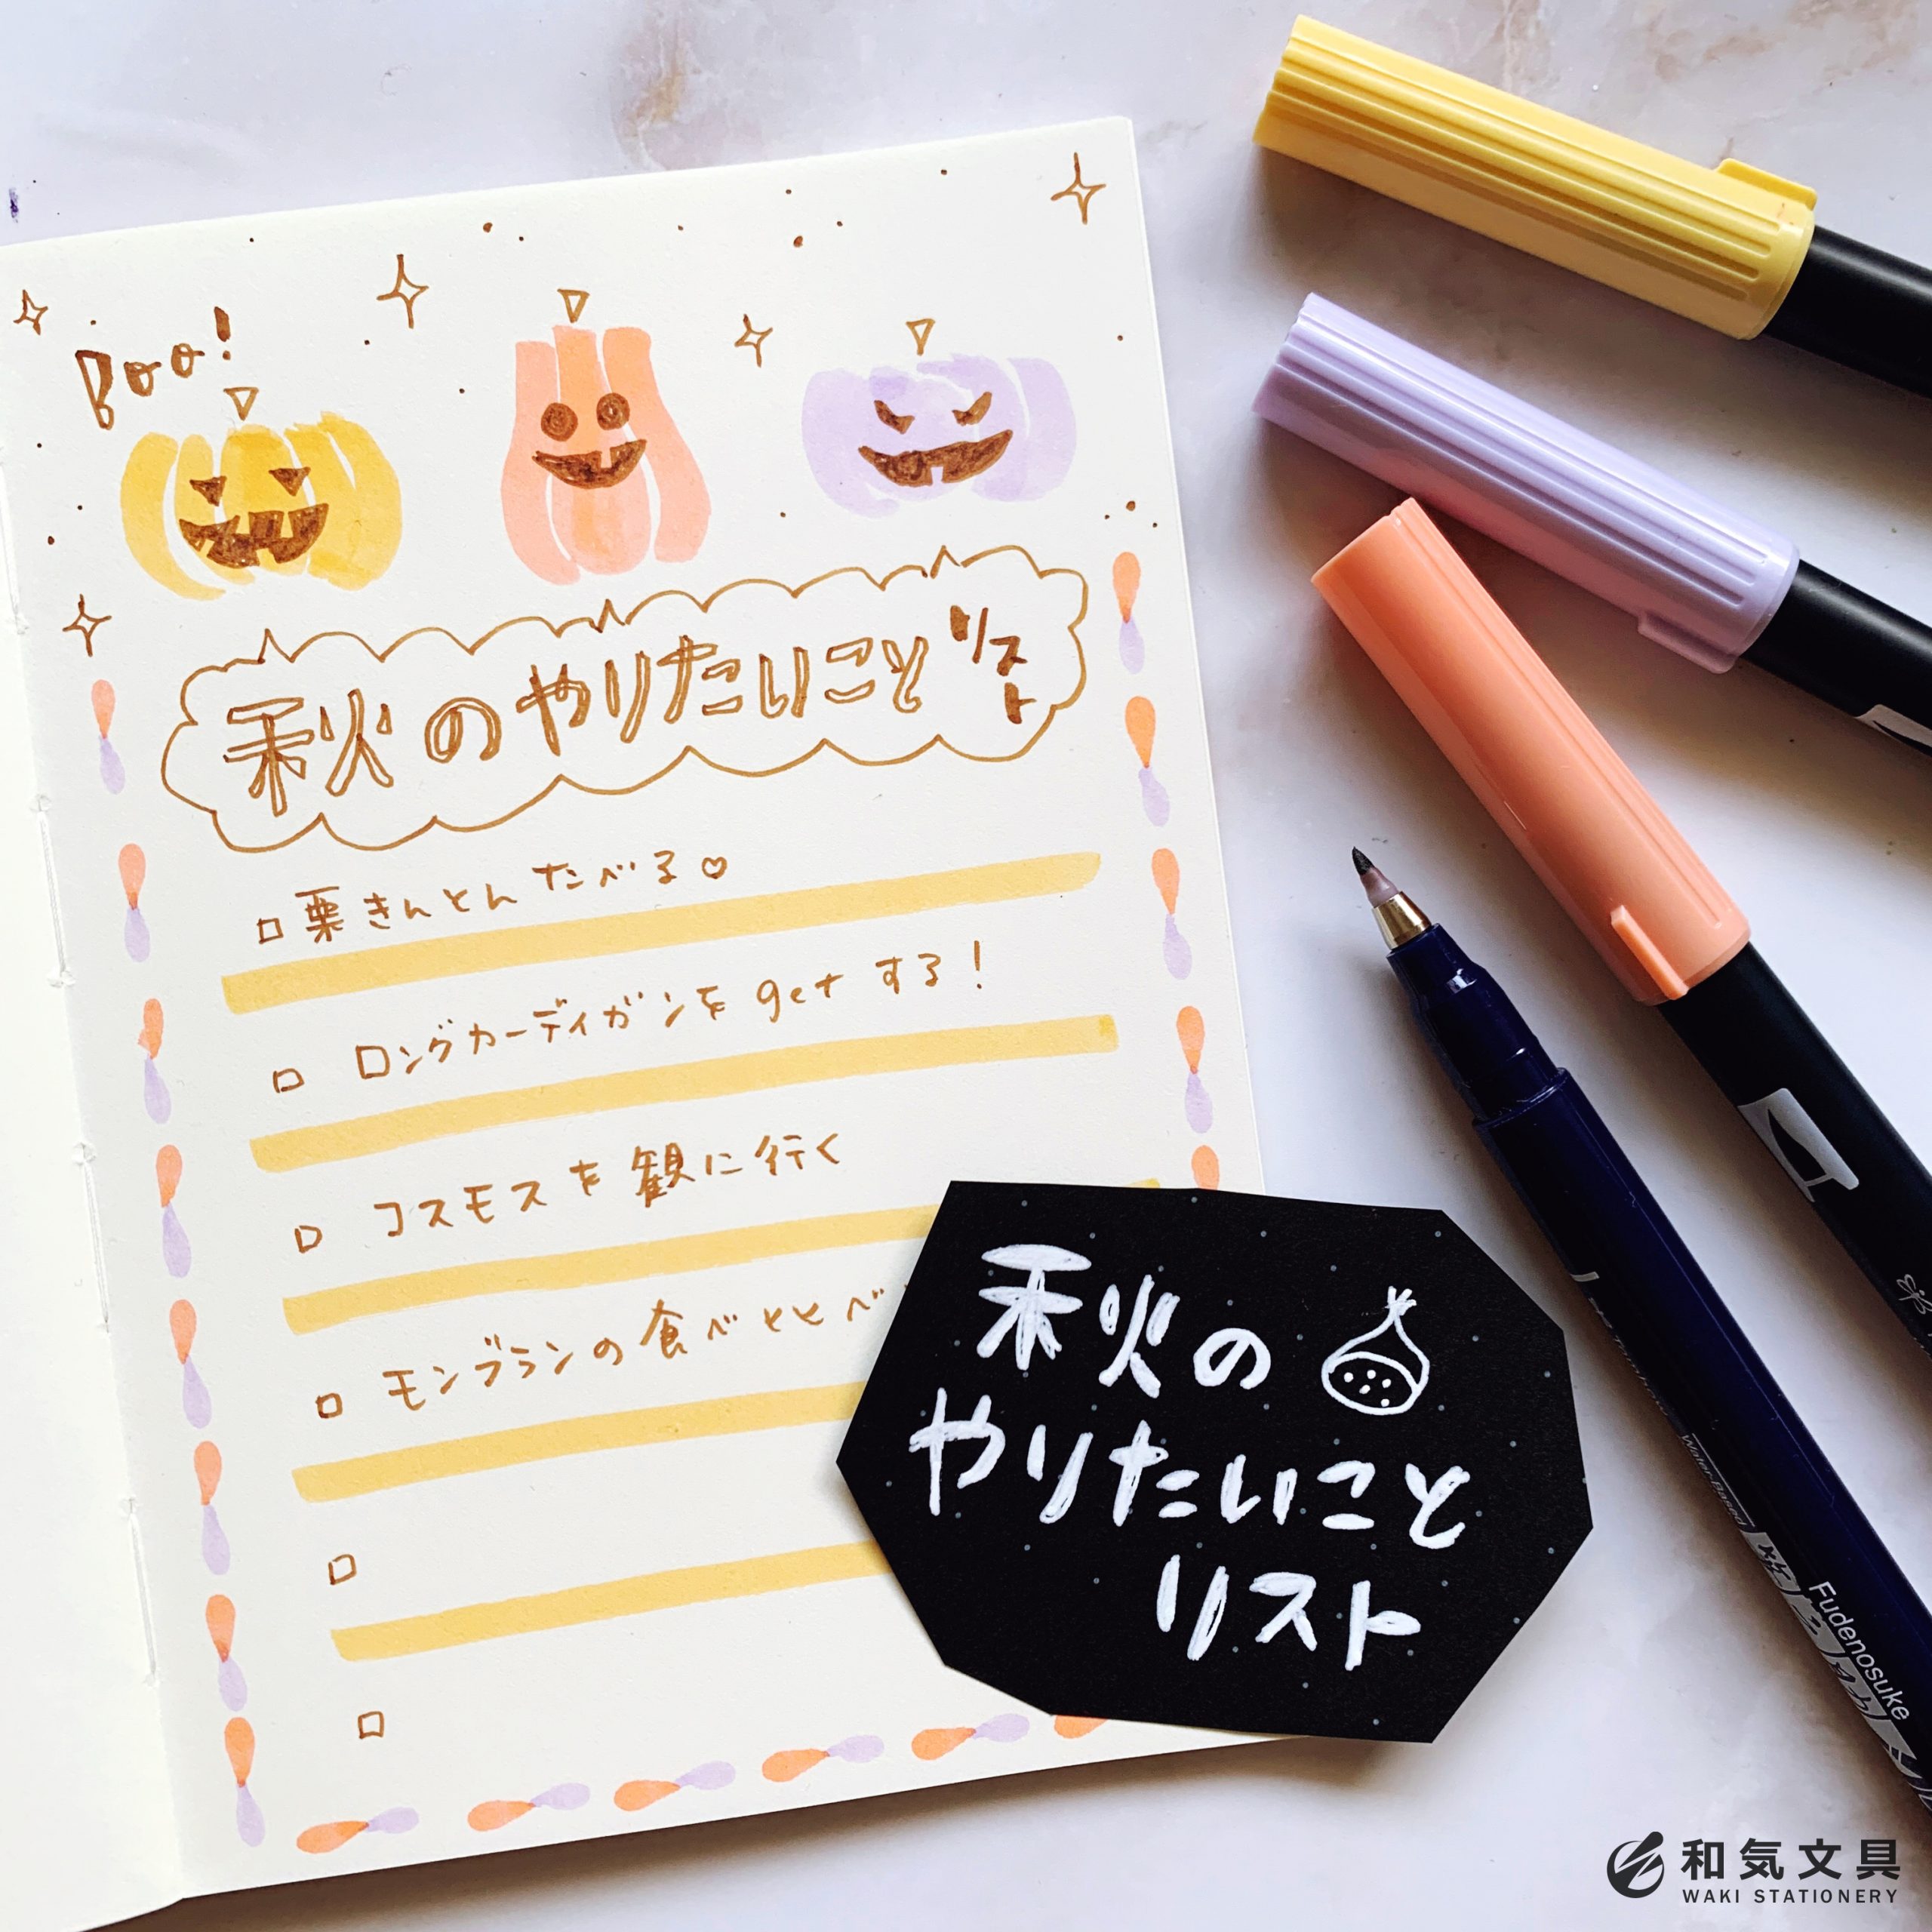 Boo!
秋のやりたいことリスト
□ 栗きんとんたべる♡
□ ロングカーディガンをgetする!
□ コスモスを観に行く
□ モンブランの食べ
□
□
秋の
やりたいこと
リスト
Water-Based
Fudenosuke
和気文具
WAKI STATIONERY